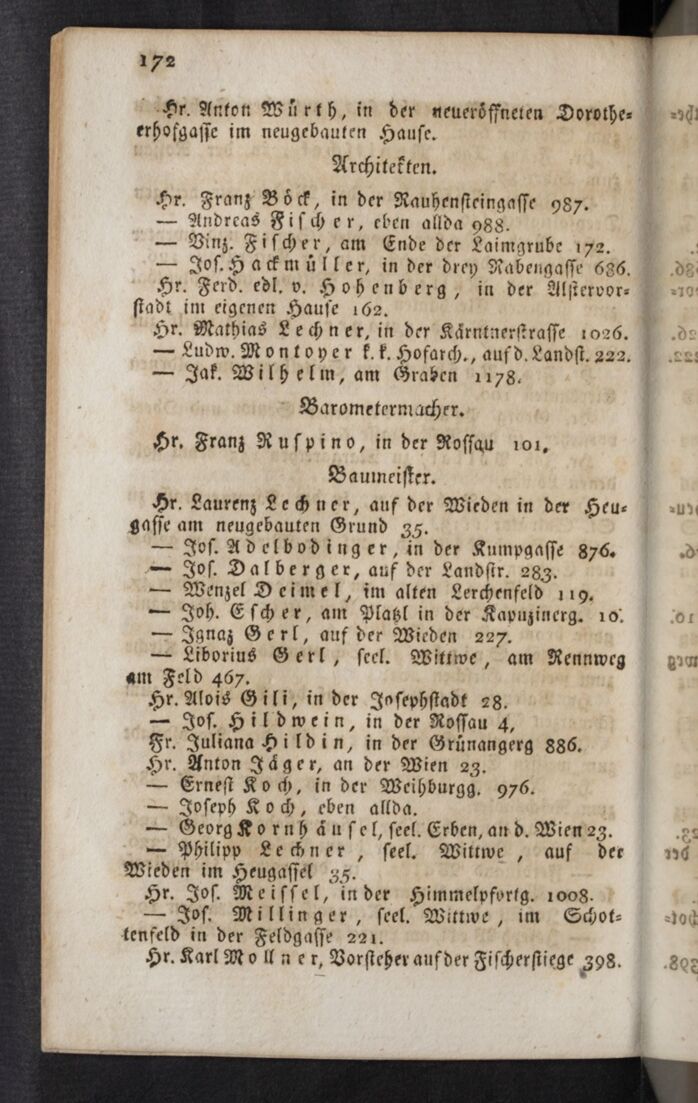 172
Hr. Anton Würth, in der neueröffneten Dorothe=
erhofgasse im neugebauten Hause.
Architekten.
Hr. Franz Böck, in der Rauhensteingasse 987.
— Andreas Fischer, eben allda 988.
— Vinz. Fischer, am Ende der Laimgrube 172.
— Jos. Hackmüller, in der drey Rabengasse 686.
Hr. Ferd. edl. v. Hohenberg, in der Alstervor=
stadt im eigenen Hause 162.
Hr. Mathias Lechner, in der Kärntnerstrasse 1026.
— Ludw. Montoyer k. k. Hofarch., auf d. Landst. 222.
— Jak. Wilhelm, am Graben 1178.
Barometermacher.
Hr. Franz Ruspino, in der Rossau 101.
Baumeister.
Hr. Laurenz Lechner, auf der Wieden in der Heu=
gasse am neugebauten Grund 35.
— Jos. Adelbodinger, in der Kumpgasse 876.
— Jos. Dalberger, auf der Landstr. 283.
— Wenzel Deimel, im alten Lerchenfeld 119.
— Joh. Escher, am Platzl in der Kapuzinerg. 10.
— Ignaz Gerl, auf der Wieden 227.
— Liborius Gerl, seel. Wittwe, am Rennweg
am Feld 467.
Hr. Alois Gili, in der Josephstadt 28.
— Jos. Hildwein, in der Rossau 4,
Fr. Juliana Hildin, in der Grünangerg 886.
Hr. Anton Jäger, an der Wien 23.
— Ernest Koch, in der Weihburgg. 976.
— Joseph Koch, eben allda.
— Georg Kornhäusel, seel. Erben, an d. Wien 23.
— Philipp Lechner, seel. Wittwe, auf der
Wieden im Heugassel 35.
Hr. Jos. Meissel, in der Himmelpfortg. 1008.
— Jos. Millinger, seel. Wittwe, im Schot=
tenfeld in der Feldgasse 221.
Hr. Karl Mollner, Vorsteher auf der Fischerstiege 398.